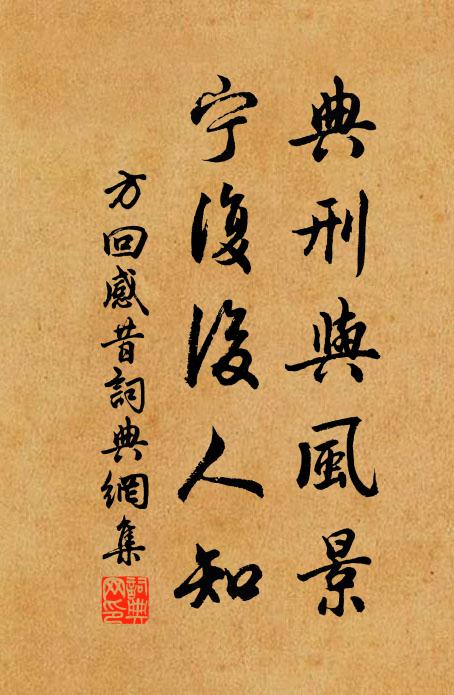 典刑與風景
宁復後人知
方回感昔詞典網集
詞典网印